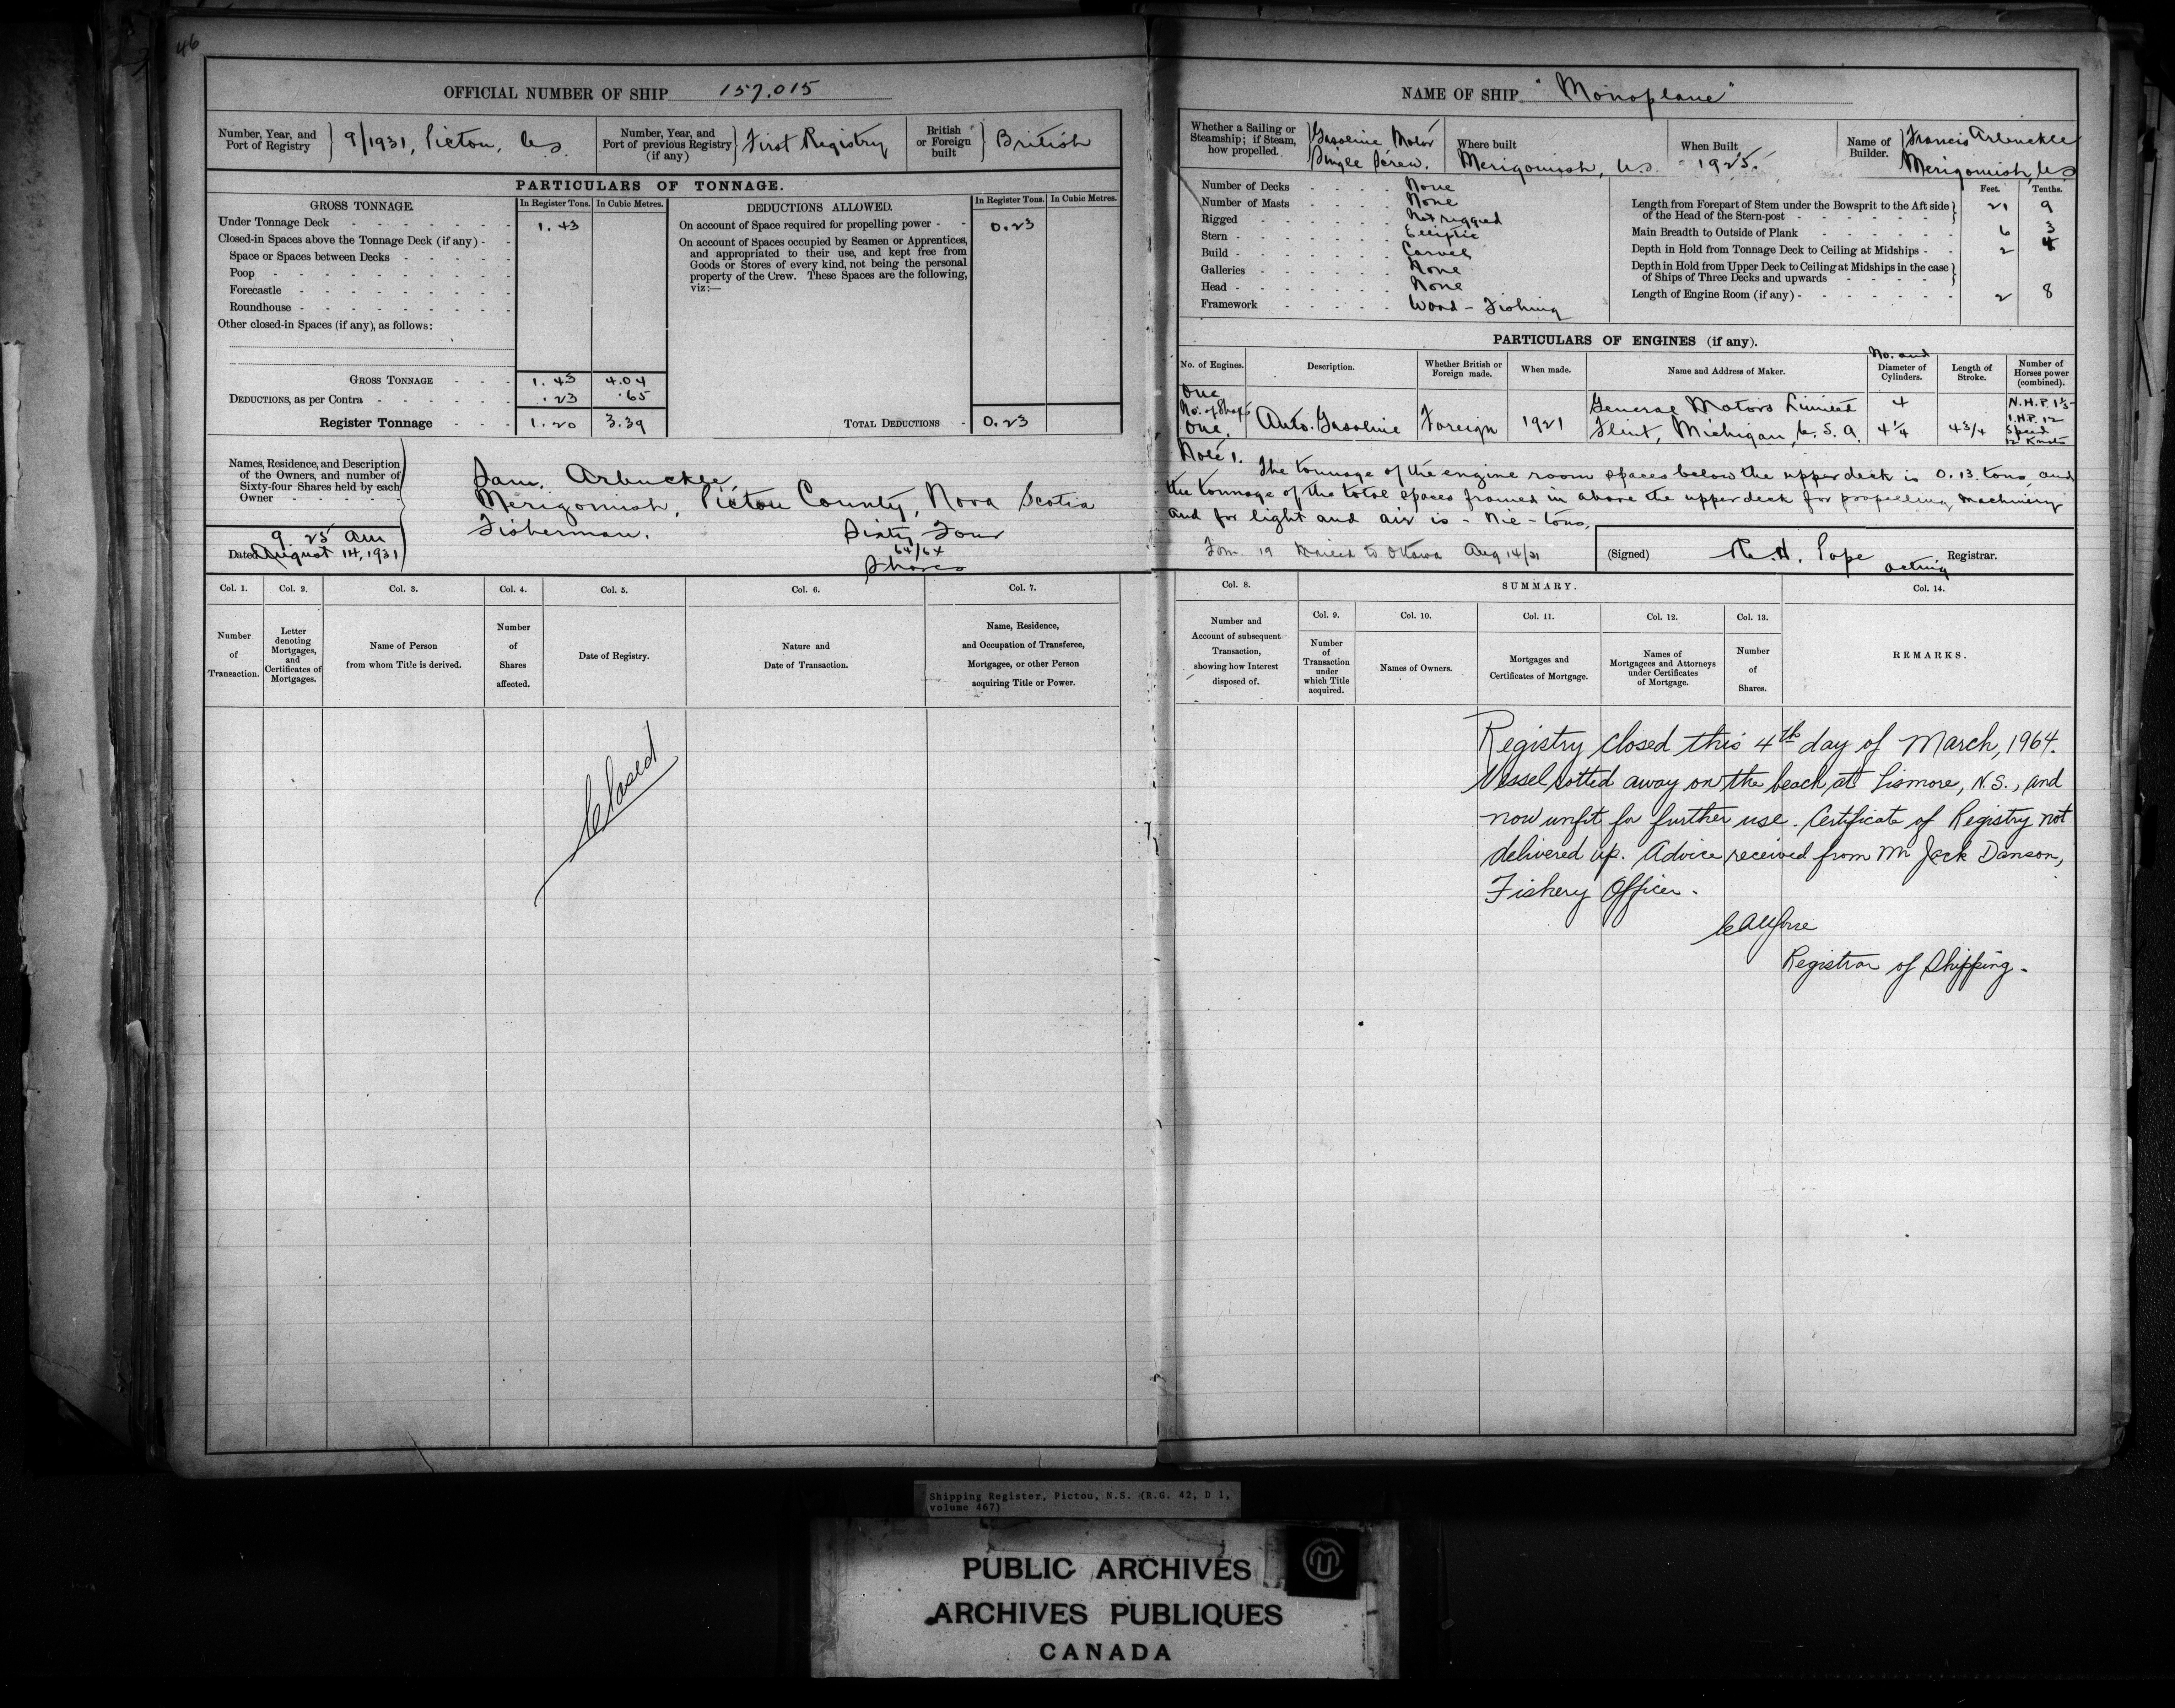 46
OFFICIAL NUMBER OF SHIP 157.015
Number, Year, and Port of Registry } 9/1931, Pictou, N.S.
Number, Year, and Port of previous Registry (if any) } First Registry
British or Foreign built } British
PARTICULARS OF TONNAGE.
GROSS TONNAGE. In Register Tons. In Cubic Metres.
Under Tonnage Deck 1.43
Closed-in Spaces above the Tonnage Deck (if any)
Space or Spaces between Decks
Poop
Forecastle
Roundhouse
Other closed-in Spaces (if any), as follows:
GROSS TONNAGE 1.43 4.04
DEDUCTIONS, as per Contra .23 .65
Register Tonnage 1.20 3.39
DEDUCTIONS ALLOWED. In Register Tons. In Cubic Metres.
On account of Space required for propelling power 0.23
On account of Spaces occupied by Seamen or Apprentices,
and appropriated to their use, and kept free from
Goods or Stores of every kind, not being the personal
property of the Crew. These Spaces are the following,
viz:—
TOTAL DEDUCTIONS 0.23
Names, Residence, and Description
of the Owners, and number of
Sixty-four Shares held by each
Owner
9.25 am
Dated August 14, 1931
Sam. Arbuckle,
Merigomish, Pictou County, Nova Scotia
Fisherman. Sixty Four
64/64
Shares
Col. 1. Col. 2. Col. 3. Col. 4. Col. 5. Col. 6. Col. 7.
Number of Transaction.
Letter denoting Mortgages, and Certificates of Mortgages.
Name of Person from whom Title is derived.
Number of Shares affected.
Date of Registry.
Nature and Date of Transaction.
Name, Residence, and Occupation of Transferee, Mortgagee, or other Person acquiring Title or Power.
Closed
NAME OF SHIP "Monoplane"
Whether a Sailing or Steamship; if Steam, how propelled. } Gasoline Motor Single Screw.
Where built Merigomish, N.S.
When Built 1925.
Name of Builder. } Francis Arbuckle Merigomish, N.S.
Number of Decks None
Number of Masts None
Rigged Not rigged
Stern Elliptic
Build Carvel
Galleries None
Head None
Framework Wood - Fishing
Feet. Tenths.
Length from Forepart of Stem under the Bowsprit to the Aft side of the Head of the Stern-post 21 9
Main Breadth to Outside of Plank 6 3
Depth in Hold from Tonnage Deck to Ceiling at Midships 2 4
Depth in Hold from Upper Deck to Ceiling at Midships in the case of Ships of Three Decks and upwards
Length of Engine Room (if any) 2 8
PARTICULARS OF ENGINES (if any).
No. of Engines. Description. Whether British or Foreign made. When made. Name and Address of Maker. No. and Diameter of Cylinders. Length of Stroke. Number of Horses power (combined).
One
No. of Shafts
One.
Auto. Gasoline
Foreign
1921
General Motors Limited
Flint, Michigan, U.S.A.
4
4¼
4 3/4
I.H.P. 12
Speed
12 Knots
Note 1. The tonnage of the engine room spaces below the upper deck is 0.13 tons, and
the tonnage of the total spaces framed in above the upper deck for propelling machinery
and for light and air is - Nil - tons.
Form 19 Mailed to Ottawa Aug 14/31
(Signed) Pope
acting Registrar.
Col. 8. SUMMARY. Col. 14.
Col. 9. Col. 10. Col. 11. Col. 12. Col. 13.
Number and Account of subsequent Transaction, showing how Interest disposed of.
Number of Transaction under which Title acquired.
Names of Owners.
Mortgages and Certificates of Mortgage.
Names of Mortgagees and Attorneys under Certificates of Mortgage.
Number of Shares.
REMARKS.
Registry closed this 4th day of March, 1964.
Vessel rotted away on the beach at Lismore, N.S., and
now unfit for further use. Certificate of Registry not
delivered up. Advice received from Mr Jack Danson,
Fishery Officer.
Registrar of Shipping.
Shipping Register, Pictou, N.S. (R.G. 42, D 1,
volume 467)
PUBLIC ARCHIVES
ARCHIVES PUBLIQUES
CANADA